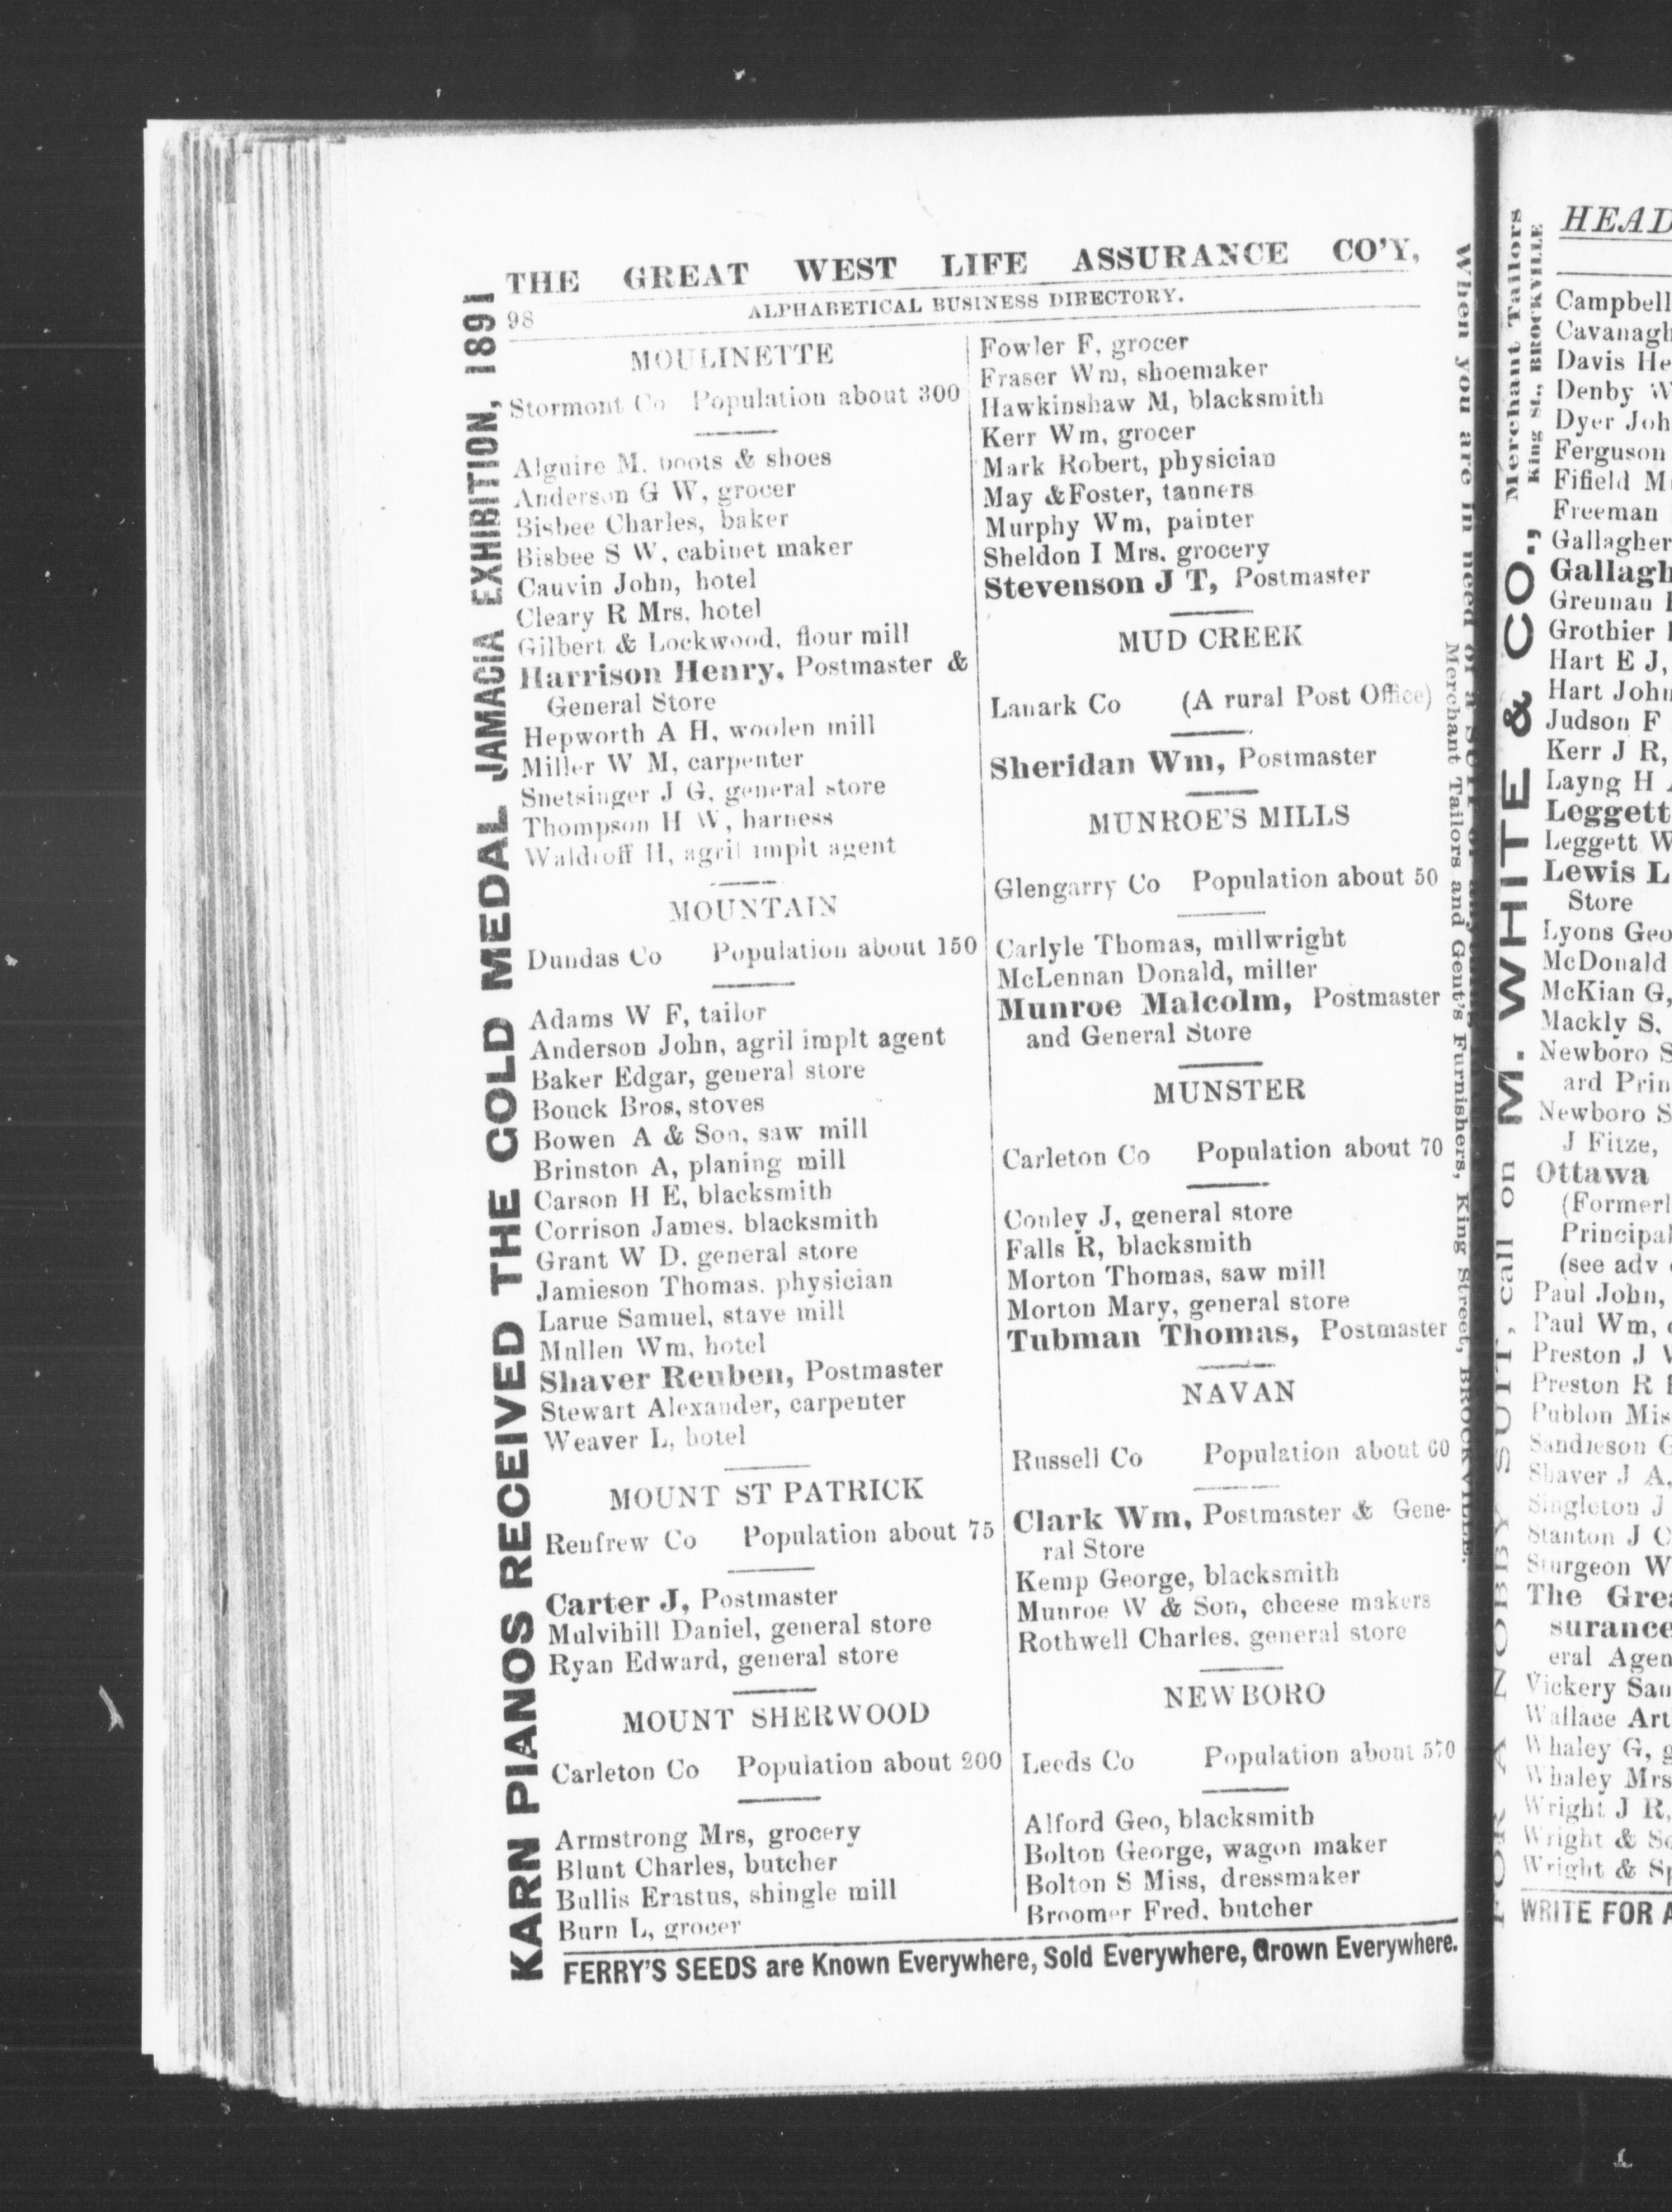 THE GREAT WEST LIFE ASSURANCE CO'Y,
98
ALPHABETICAL BUSINESS DIRECTORY.
MOULINETTE
Stormont Co Population about 300
Alguire M. boots & shoes
Anderson G W, grocer
Bisbee Charles, baker
Bisbee S W, cabinet maker
Cauvin John, hotel
Cleary R Mrs, hotel
Gilbert & Lockwood, flour mill
Harrison Henry, Postmaster &
General Store
Hepworth A H, woolen mill
Miller W M, carpenter
Snetsinger J G, general store
Thompson H W, harness
Waldroff H, agril implt agent
MOUNTAIN
Dundas Co Population about 150
Adams W F, tailor
Anderson John, agril implt agent
Baker Edgar, general store
Bouck Bros, stoves
Bowen A & Son, saw mill
Brinston A, planing mill
Carson H E, blacksmith
Corrison James. blacksmith
Grant W D. general store
Jamieson Thomas. physician
Larue Samuel, stave mill
Mullen Wm, hotel
Shaver Reuben, Postmaster
Stewart Alexander, carpenter
Weaver L, hotel
MOUNT ST PATRICK
Renfrew Co Population about 75
Carter J, Postmaster
Mulvihill Daniel, general store
Ryan Edward, general store
MOUNT SHERWOOD
Carleton Co Population about 200
Armstrong Mrs, grocery
Blunt Charles, butcher
Bullis Erastus, shingle mill
Burn L, grocer
Fowler F, grocer
Fraser Wm, shoemaker
Hawkinshaw M, blacksmith
Kerr Wm, grocer
Mark Robert, physician
May &Foster, tanners
Murphy Wm, painter
Sheldon I Mrs. grocery
Stevenson J T, Postmaster
MUD CREEK
Lanark Co (A rural Post Office)
Sheridan Wm, Postmaster
MUNROE'S MILLS
Glengarry Co Population about 50
Carlyle Thomas, millwright
McLennan Donald, miller
Munroe Malcolm, Postmaster
and General Store
MUNSTER
Carleton Co Population about 70
Conley J, general store
Falls R, blacksmith
Morton Thomas, saw mill
Morton Mary, general store
Tubman Thomas, Postmaster
NAVAN
Russell Co Population about 60
Clark Wm, Postmaster & Gene-
ral Store
Kemp George, blacksmith
Munroe W & Son, cheese makers
Rothwell Charles, general store
NEWBORO
Leeds Co Population about 570
Alford Geo, blacksmith
Bolton George, wagon maker
Bolton S Miss, dressmaker
Broomer Fred, butcher
FERRY'S SEEDS are Known Everywhere, Sold Everywhere, Grown Everywhere.
KARN PIANOS RECEIVED THE GOLD MEDAL JAMACIA EXHIBITION, 1891
When you are in need of a
Merchant Tailors and Gent's Furnishers, King Street, BROCKVILLE.
FOR A NOBBY SUIT, call on M. WHITE & CO., Merchant Tailors
King St., BROCKVILLE
HEAD
Campbell
Cavanagh
Davis He
Denby W
Dyer Joh
Ferguson
Fifield M
Freeman
Gallagher
Gallagh
Grennan
Grothier
Hart E J,
Hart John
Judson F
Kerr J R,
Layng H
Leggett
Leggett W
Lewis L
Store
Lyons Geo
McDonald
McKian G,
Mackly S,
Newboro S
ard Prin
Newboro S
J Fitze,
Ottawa
(Formerl
Principal
(see adv
Paul John,
Paul Wm,
Preston J
Preston R
Publon Mis
Sandieson G
Shaver J A,
Singleton J
Stanton J C
Sturgeon W
The Grea
surance
eral Agen
Vickery Sam
Wallace Art
Whaley G, g
Whaley Mrs
Wright J R,
Wright & So
Wright & Sp
WRITE FOR A